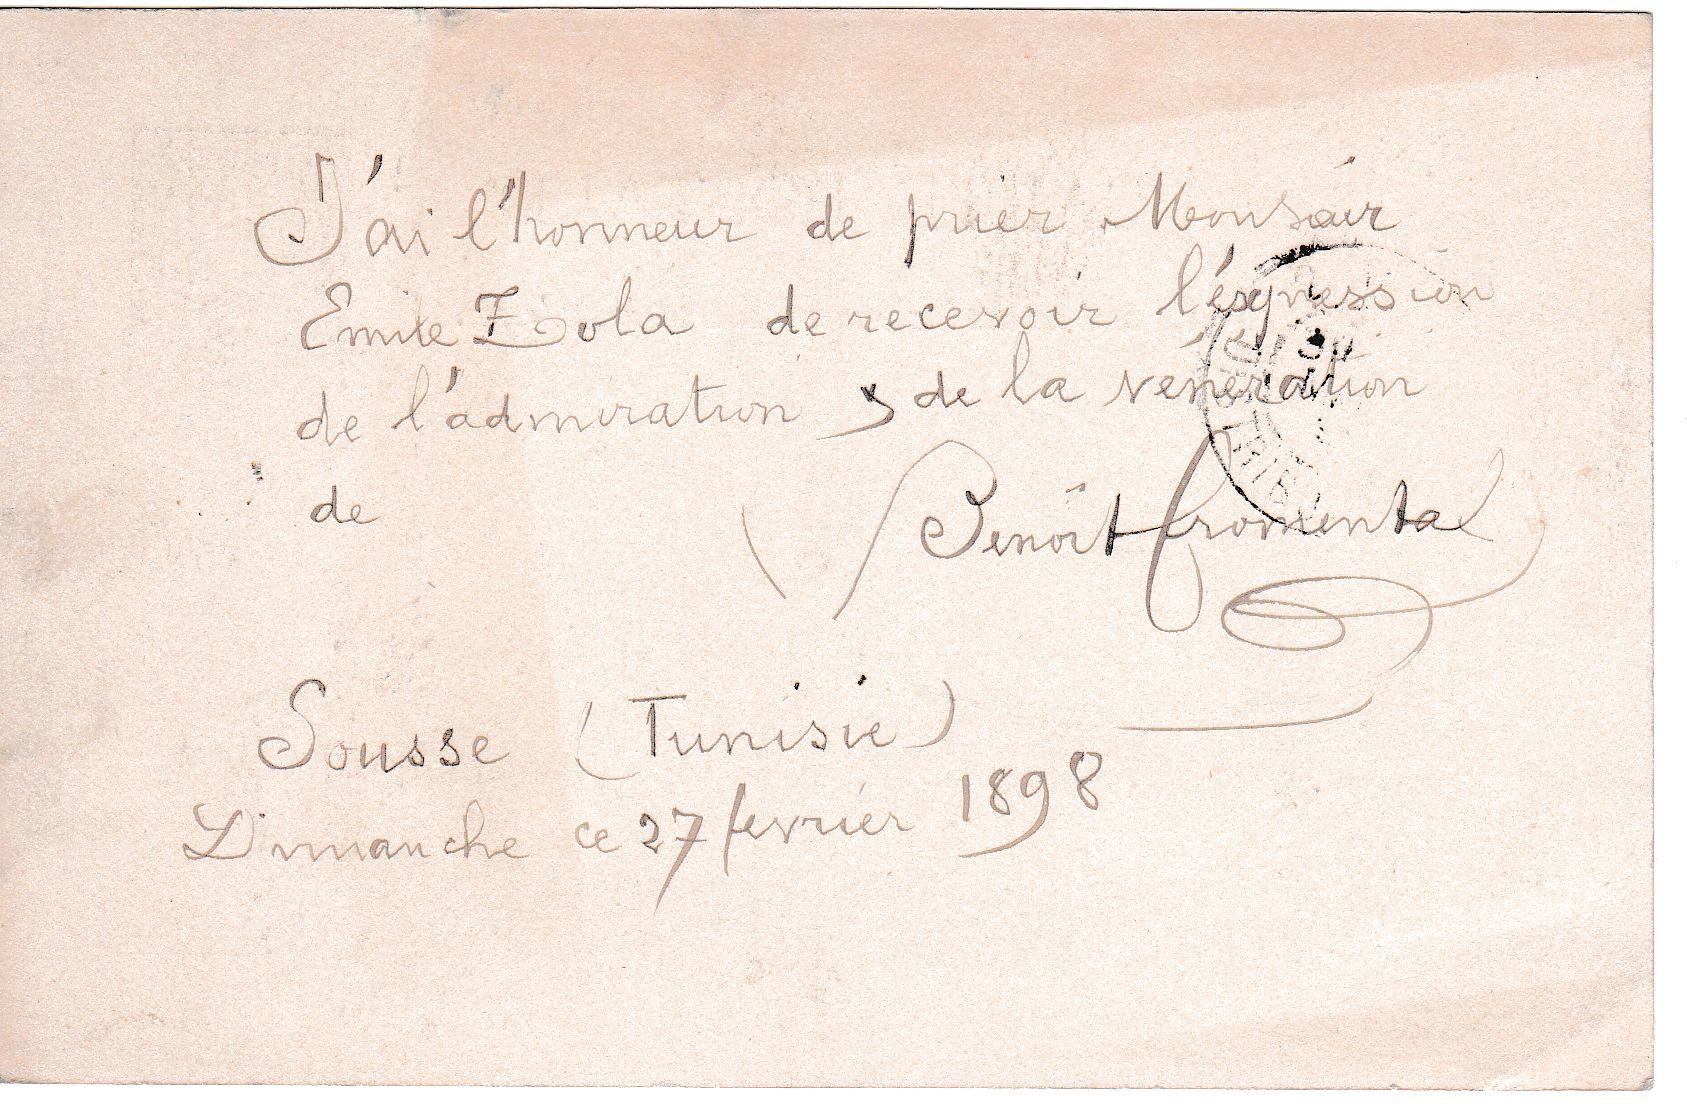 J'ai l'honneur de prier Monsieur
Emile Zola de recevoir l'expression
de l'admiration & de la vénération
de Benoît Fromental
Sousse (Tunisie)
Dimanche ce 27 février 1898